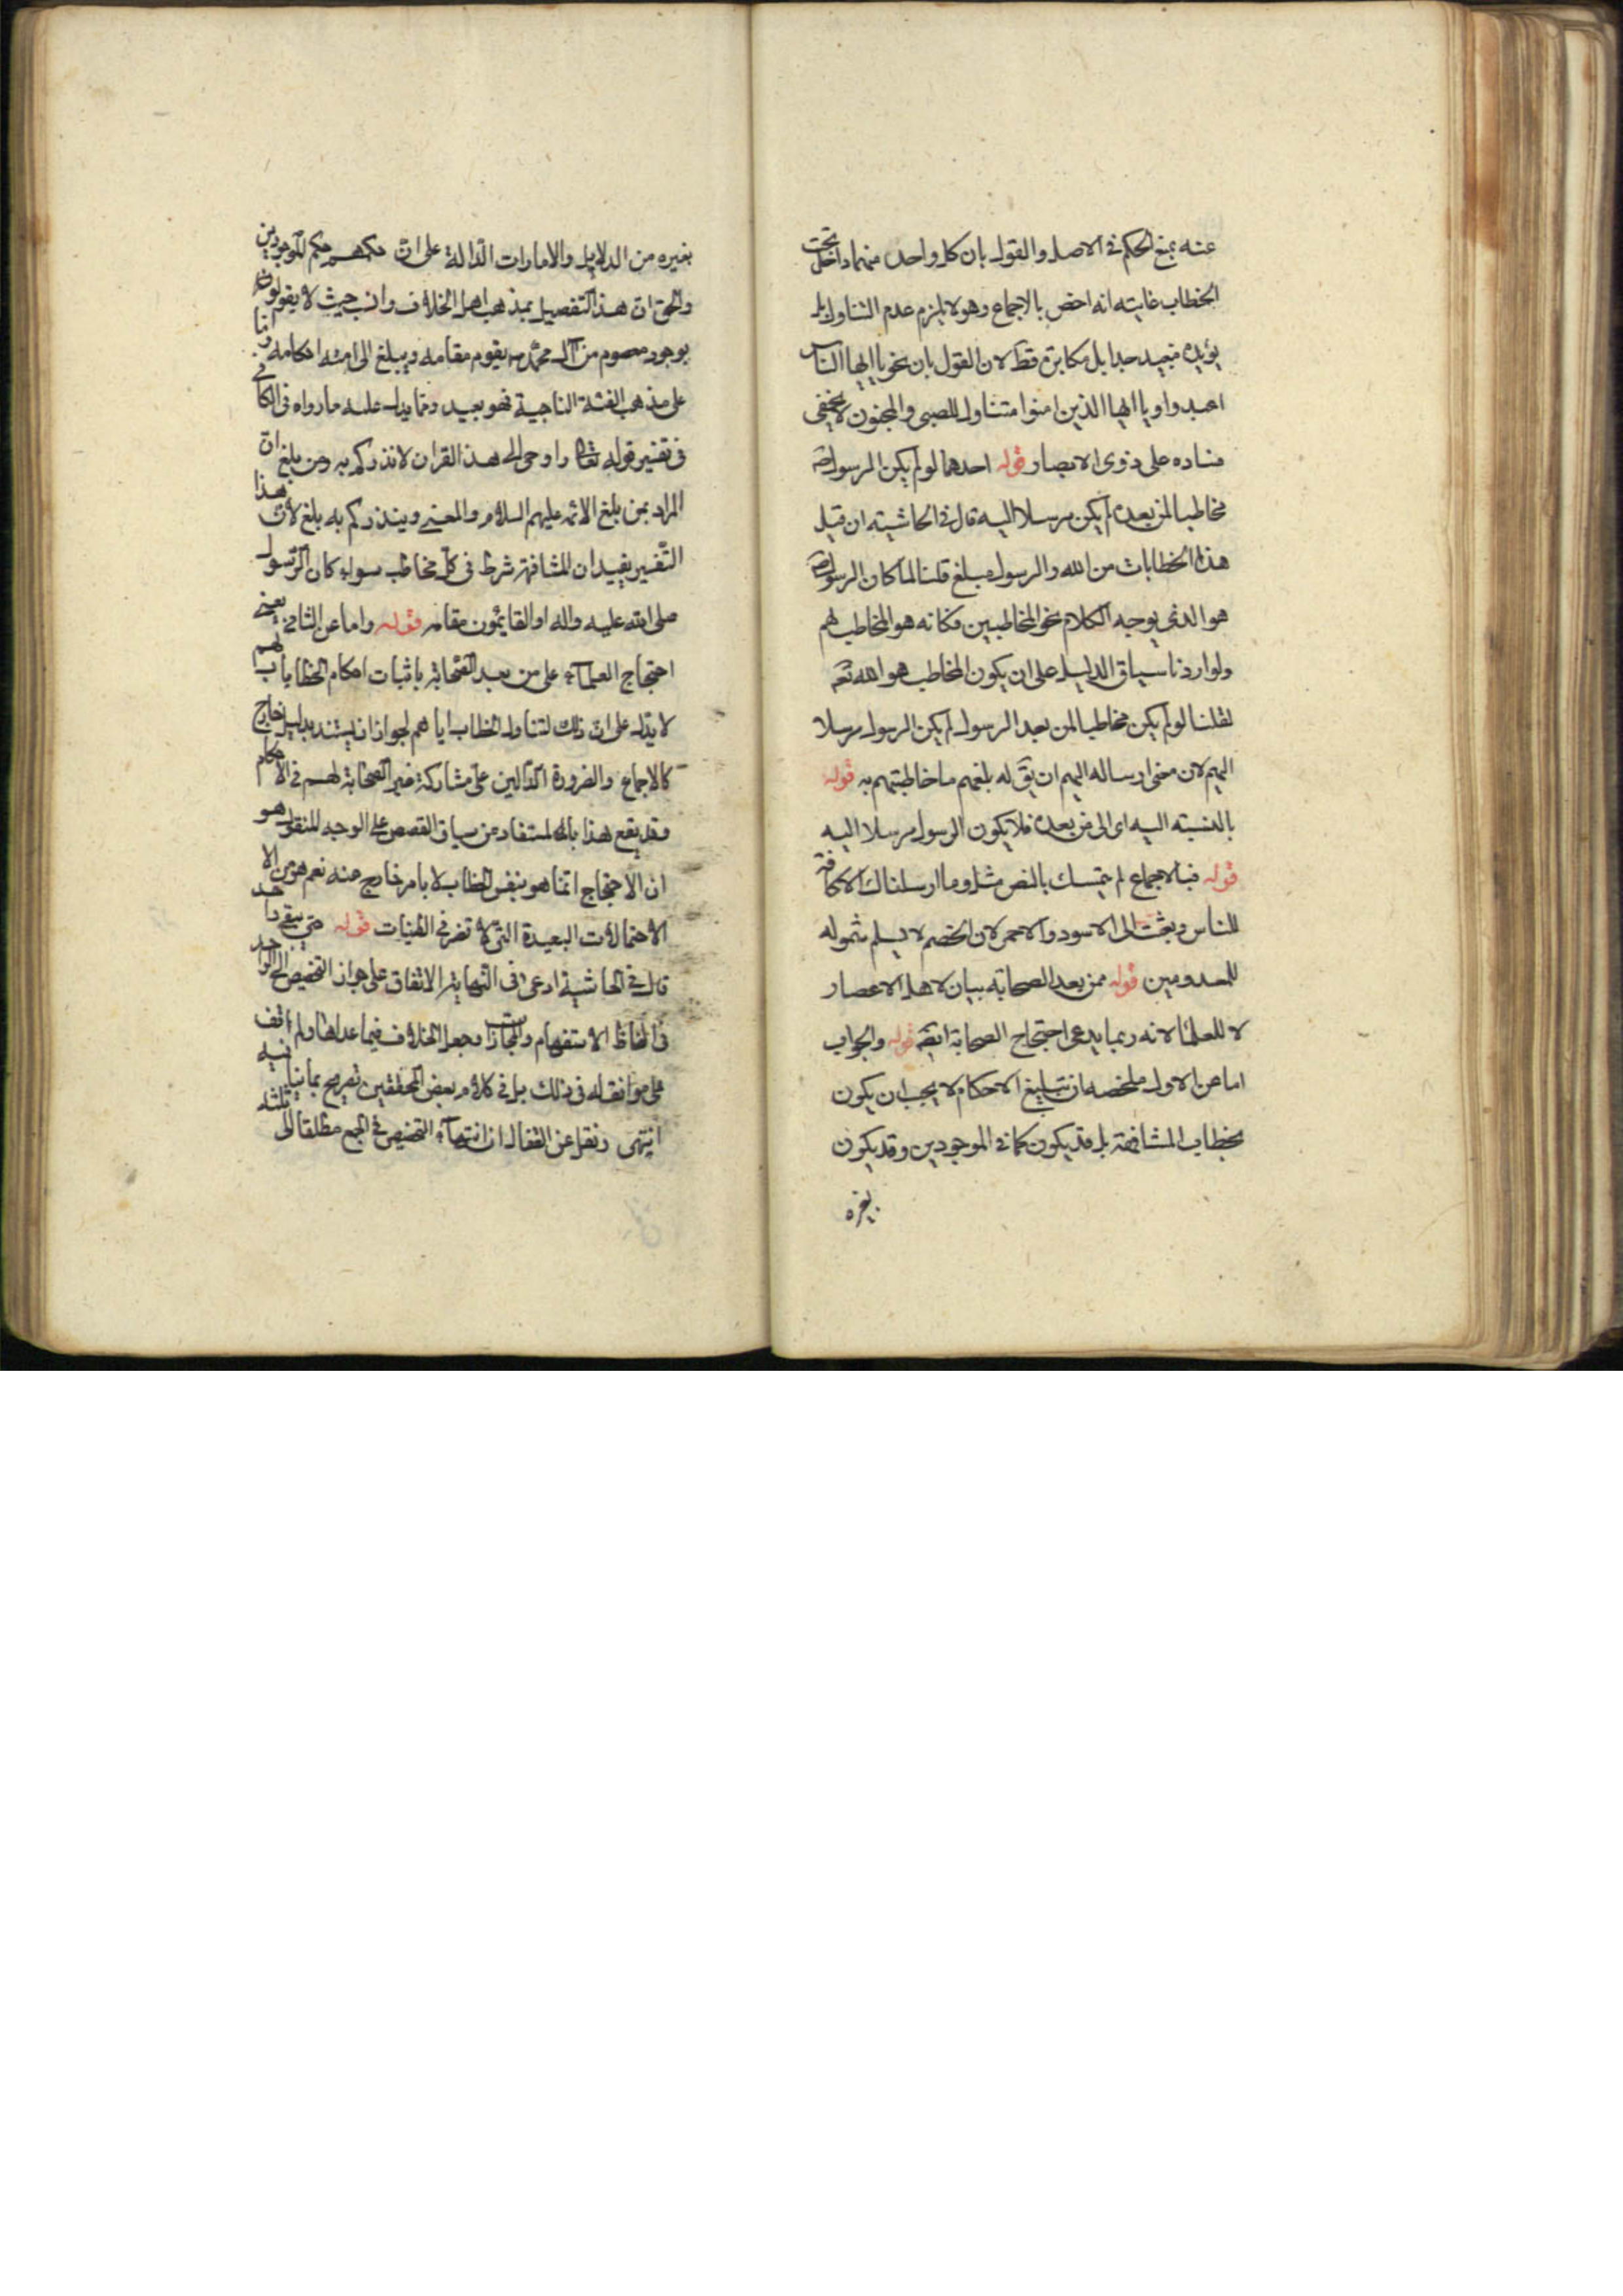 عنه بمنع الحكم في الاصل والقول بان كل واحد منهما داخل تحت
الخطاب غايته انه اخص بالاجماع وهو لا يلزم عدم التناول بل
يؤيده فبعيد جدا بل مكابرة قط لان القول بان نحو يا ايها الناس
اعبدوا ويا ايها الذين امنوا متناول للصبي والمجنون لا يخفى
فساده على ذوى الابصار قوله احدهما لو لم يكن الرسول ص
مخاطبا لمن بعده لم يكن مرسلا اليه قال في الحاشيته ان قيل
هذا الخطابات من الله والرسول مبلغ قلنا لما كان الرسول ص
هو الذى يوجه الكلام نحو المخاطبين فكانه هو المخاطب لهم
ولو اردنا سياق الدليل على ان يكون المخاطب هو الله تعه
لقلنا لو لم يكن مخاطبا لمن بعد الرسول لم يكن الرسول مرسلا
اليهم لان معنى ارساله اليهم ان يق له بلغهم ما خاطبتهم به قوله
بالنسبته اليه اى الى من بعده فلا يكون الرسول مرسلا اليه
قوله فبالاجماع لم يتمسك بالنص مثل وما ارسلناك الا كافة
للناس وبعثت الى الاسود والاحمر لان الخصم لا يسلم شموله
للمعدومين قوله ممن بعد الصحابة بيان لاهل الاعصار
لا للعلما لانه ربما يدعى احتجاج الصحابة ايضا قوله والجواب
اما عن الاول ملخصه ان تبليغ الاحكام لا يجب ان يكون
بخطاب المشافهة بل قد يكون كما في الموجودين وقد يكون
بغيره
بغيره من الدلايل والامارات الدّالة على انّ حكمهم حكم الموجودين
والحق ان هذا التفصيل بمذهب اهل الخلاف وانسب حيث لا يقولون
بوجود معصوم من آل محمّد ص يقوم مقامه ويبلغ الى امته احكامه وامّا
على مذهب الفئة الناجية فهو بعيد وممّا يدل عليه ما رواه فى الكافي
في تفسير قوله تعالى واوحى الى هذا القران لانذركم به ومن بلغ انّ
المراد بمن بلغ الائمه عليهم السلام والمعنى وينذركم به بلغ لأنّ هذا
التّفسير يفيد ان المشافهة شرط فى كلّ مخاطب سواء كان الرّسول
صلى الله عليه واله او القايمون مقامه قوله واما عن الثانى يعنى
احتجاج العلمآء على من بعد الصّحابة باثبات احكام الخطابات لهم
لا يدل على ان ذلك لتناول الخطاب اياهم لجواز ان يستند بدليل خارج
كالاجماع والضرورة الدّالين على مشاركة غير الصّحابة لهم في الاحكام
وقد يقع هذا بان المستفاد من سياق القصص على الوجه المنقول هو
ان الاحتجاج انّما هو بنفس الخطاب لا بامر خارج عنه نعم هو من الا
الاحتمالات البعيدة التى لا تضر في الظنيات قوله حتى يبقى واحد
قال في الحاشية ادعى فى النّهاية الاتفاق على جواز التخصيص الى الواحد
فى الفاظ الاستفهام والمجازات وجعل الخلاف فيما عداها ولم اقف
على موافق له فى ذلك بل في كلام بعض المحققين تصريح بما ينافيه
انتهى ونقل عن القفال ان انتهآء التخصيص في الجمع مطلقا الى ثلثه